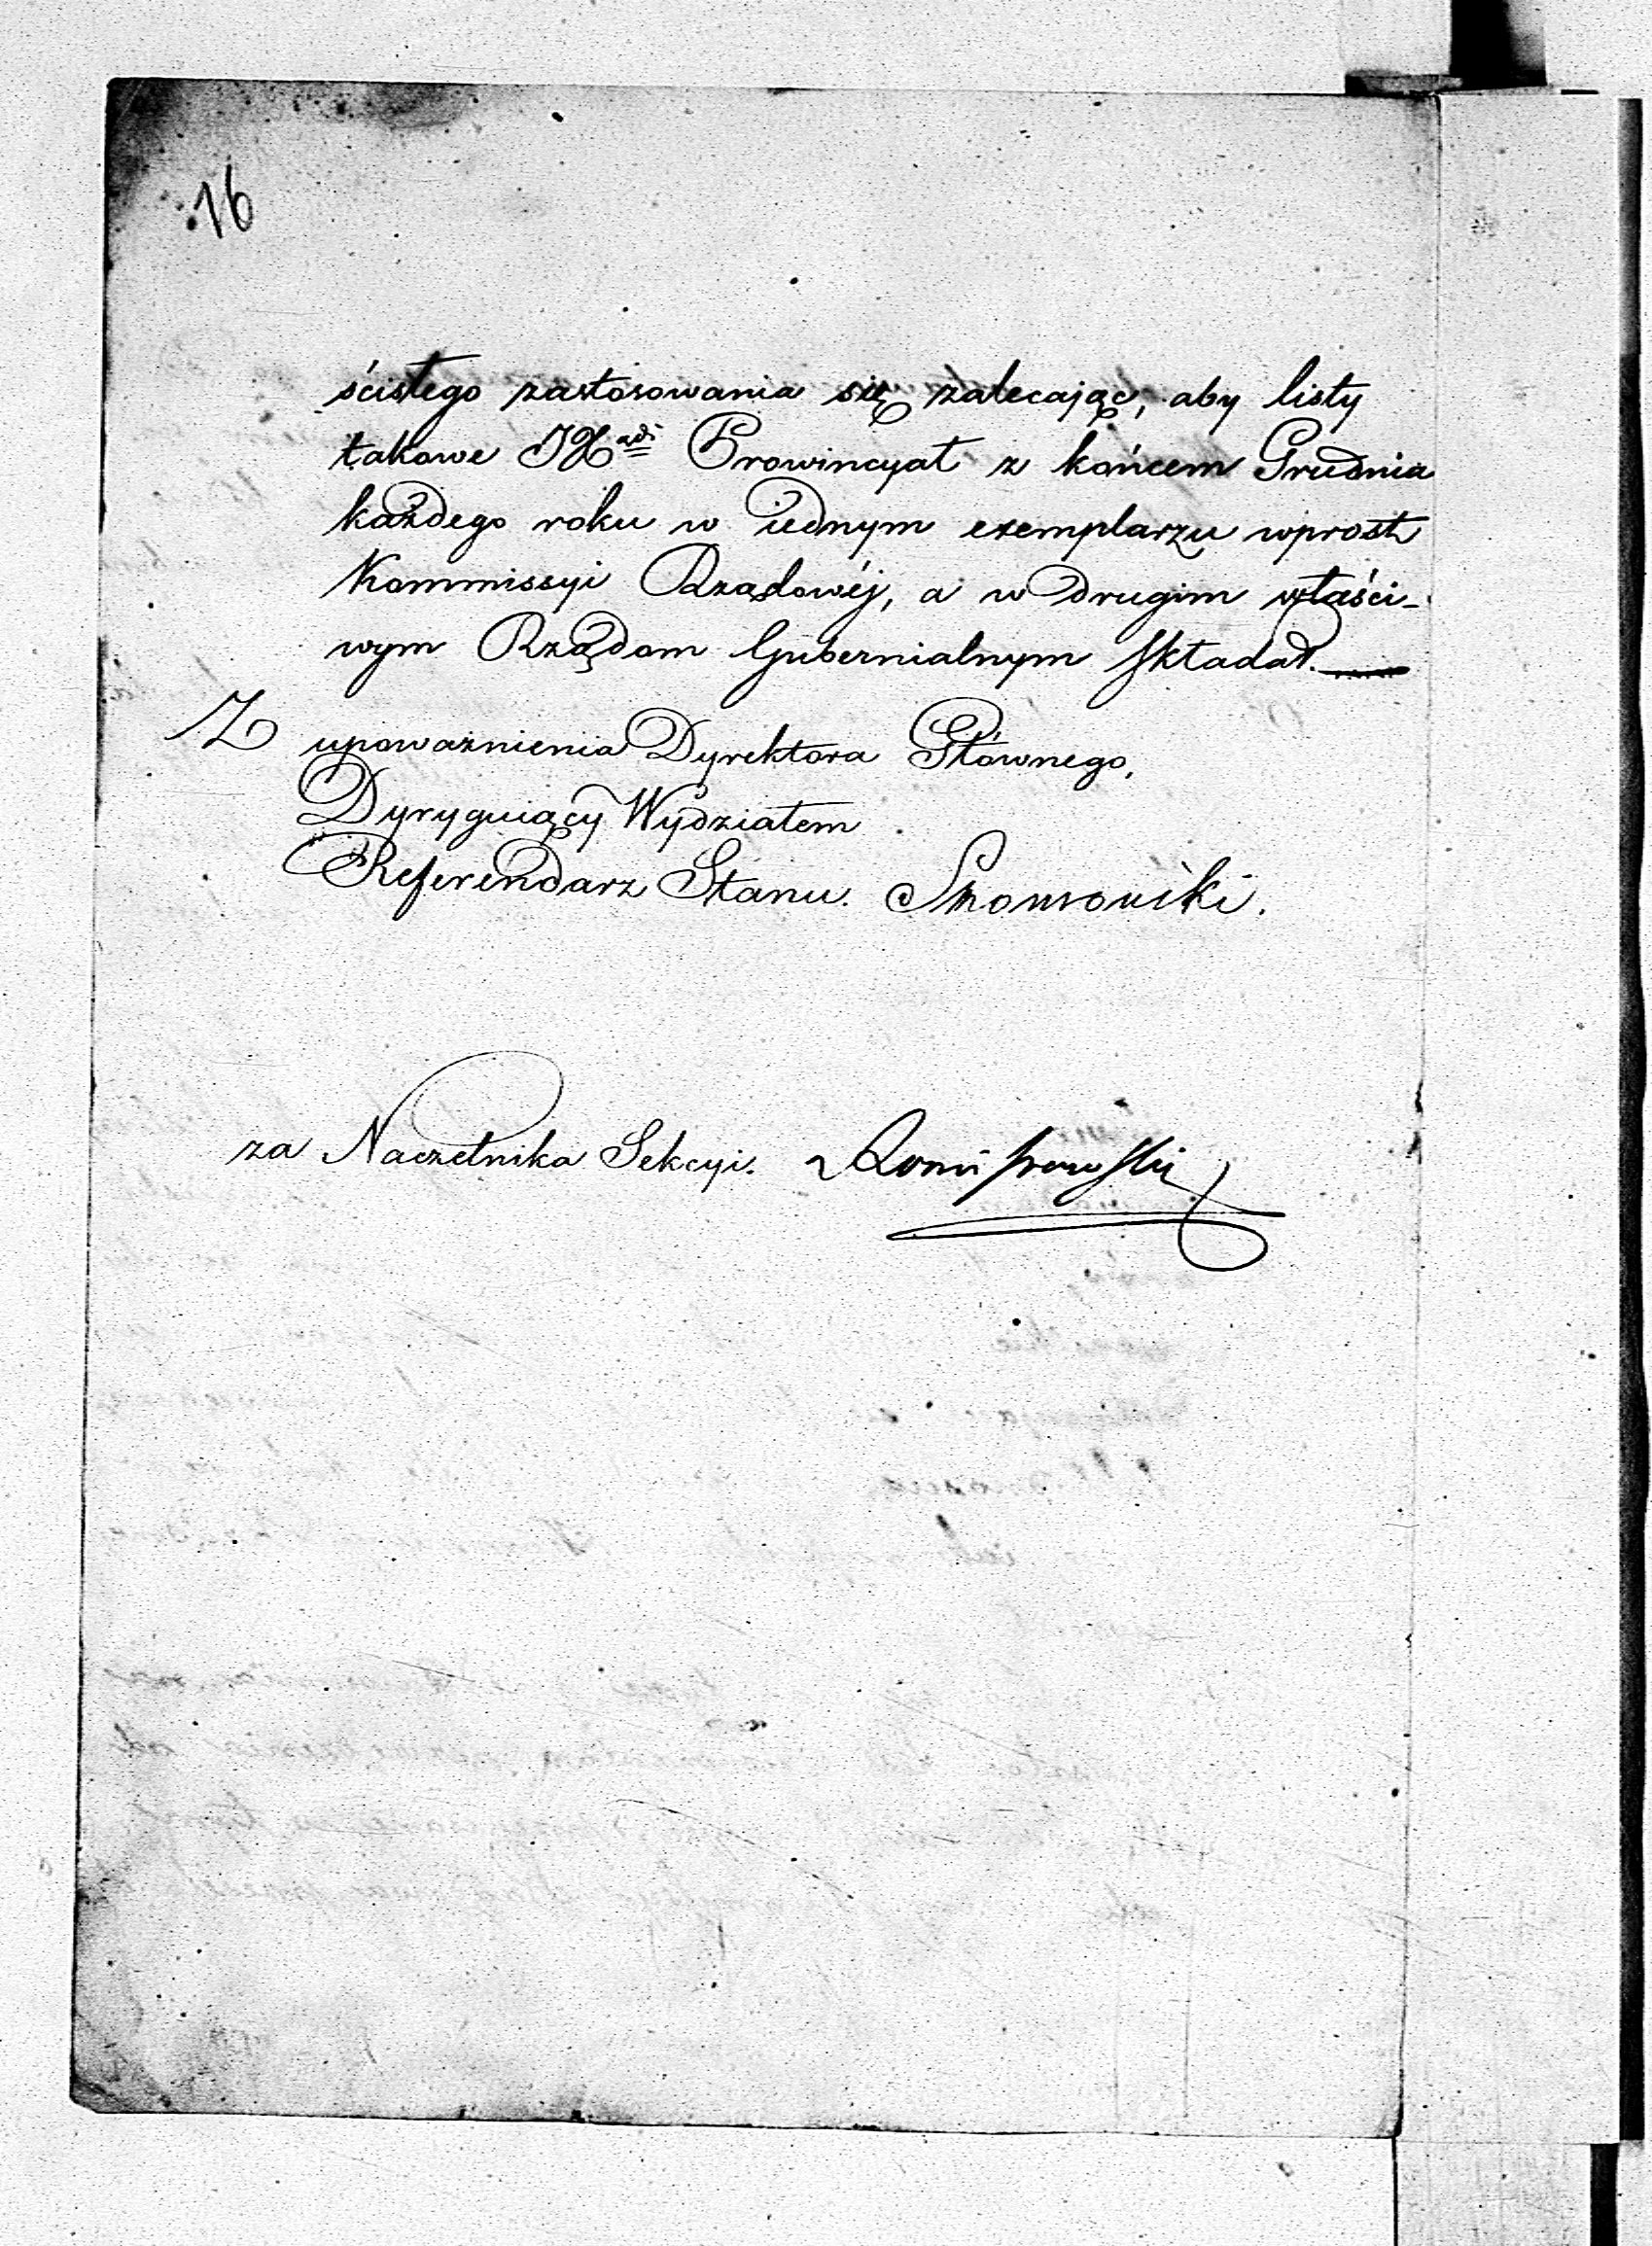 16
ścisłego zastosowania się zalecając, aby listy
takowe JX Prowincyał z końcem Grudnia
każdego roku w iednym exemplarzu wprost
Kommissyi Rządowéj, a w drugim właści-
wym Rządom Gubernialnym składał.
Z upoważnienia Dyrektora Głównego,
Dyryguiący Wydziałem
Referendarz Stanu.
za Naczelnika Sekcyi.